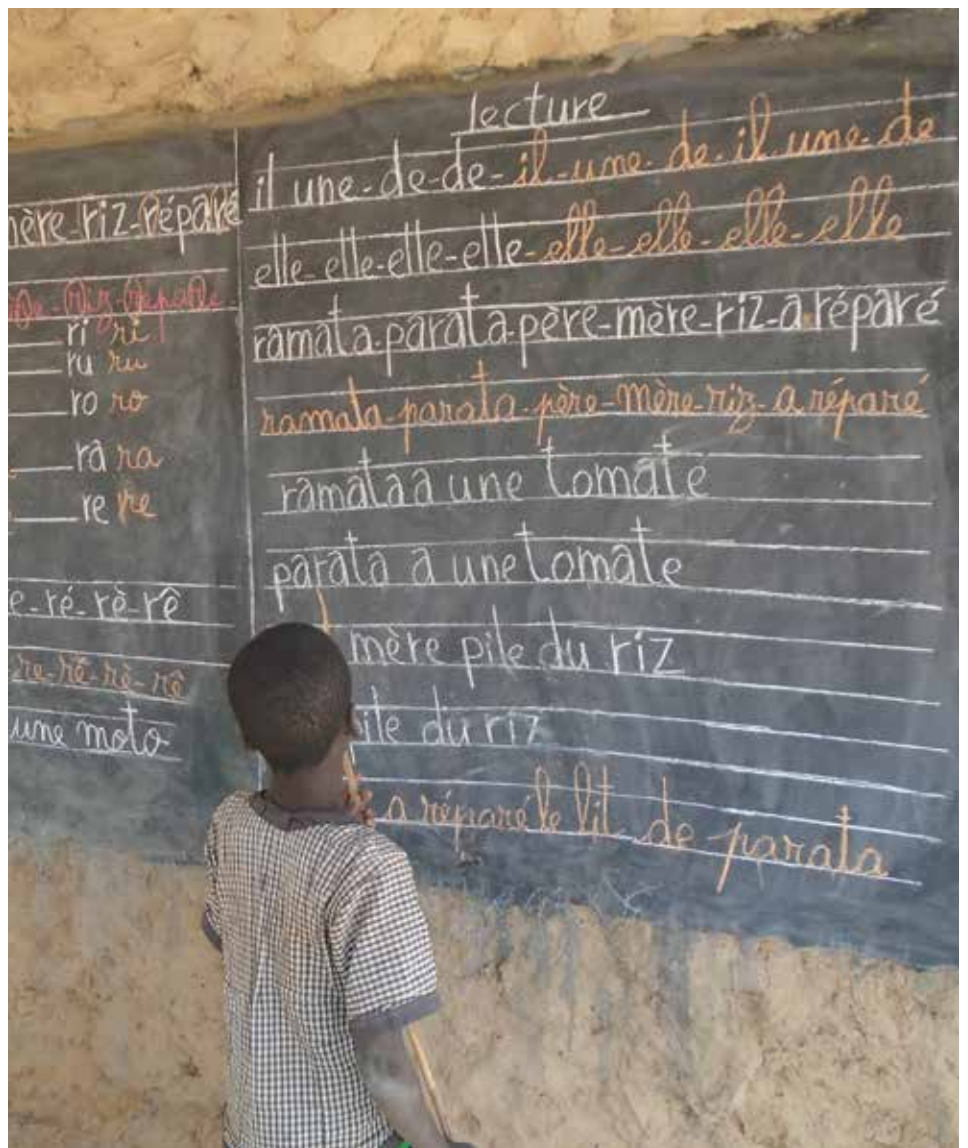 mère-riz-réparé
riz-réparé
ri ri
ru ru
ro ro
ra ra
re re
e-ré-rè-rê
re-ré-rè-rê
une moto
lecture
il une-de-de-il-une-de-il une-de
elle-elle-elle-elle-elle-elle-elle-elle
ramata-parata-père-mère-riz-a réparé
ramata-parata-père-mère-riz-a réparé
ramata a une tomate
parata a une tomate
mère pile du riz
pile du riz
a réparé le lit de parata